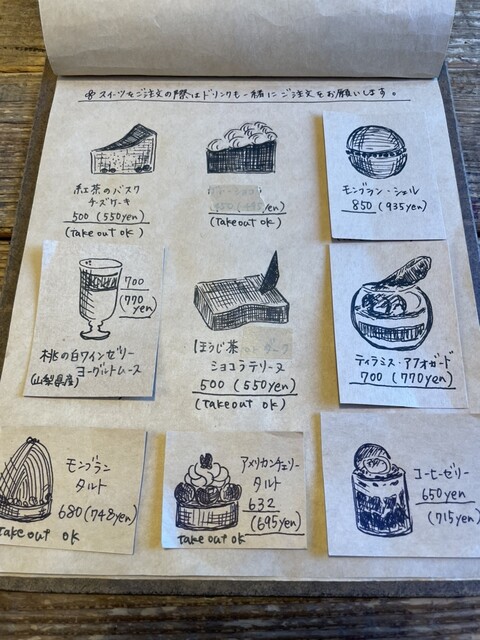 ※スイーツをご注文の際はドリンクも一緒にご注文をお願いします。
紅茶のバスク
チーズケーキ
500 (550yen)
(take out ok)
yen)
(take out ok)
モンブラン・シェル
850 (935yen)
700
(770
yen)
桃の白ワインゼリー
ヨーグルトムース
(山梨県産)
ほうじ茶
ショコラテリーヌ
500 (550yen)
(takeout ok)
ティラミス・アフォガード
700 (770yen)
モンブラン
タルト
680 (748yen)
take out ok
アメリカンチェリー
タルト
632
(695yen)
take out ok
コーヒーゼリー
650yen
(715yen)